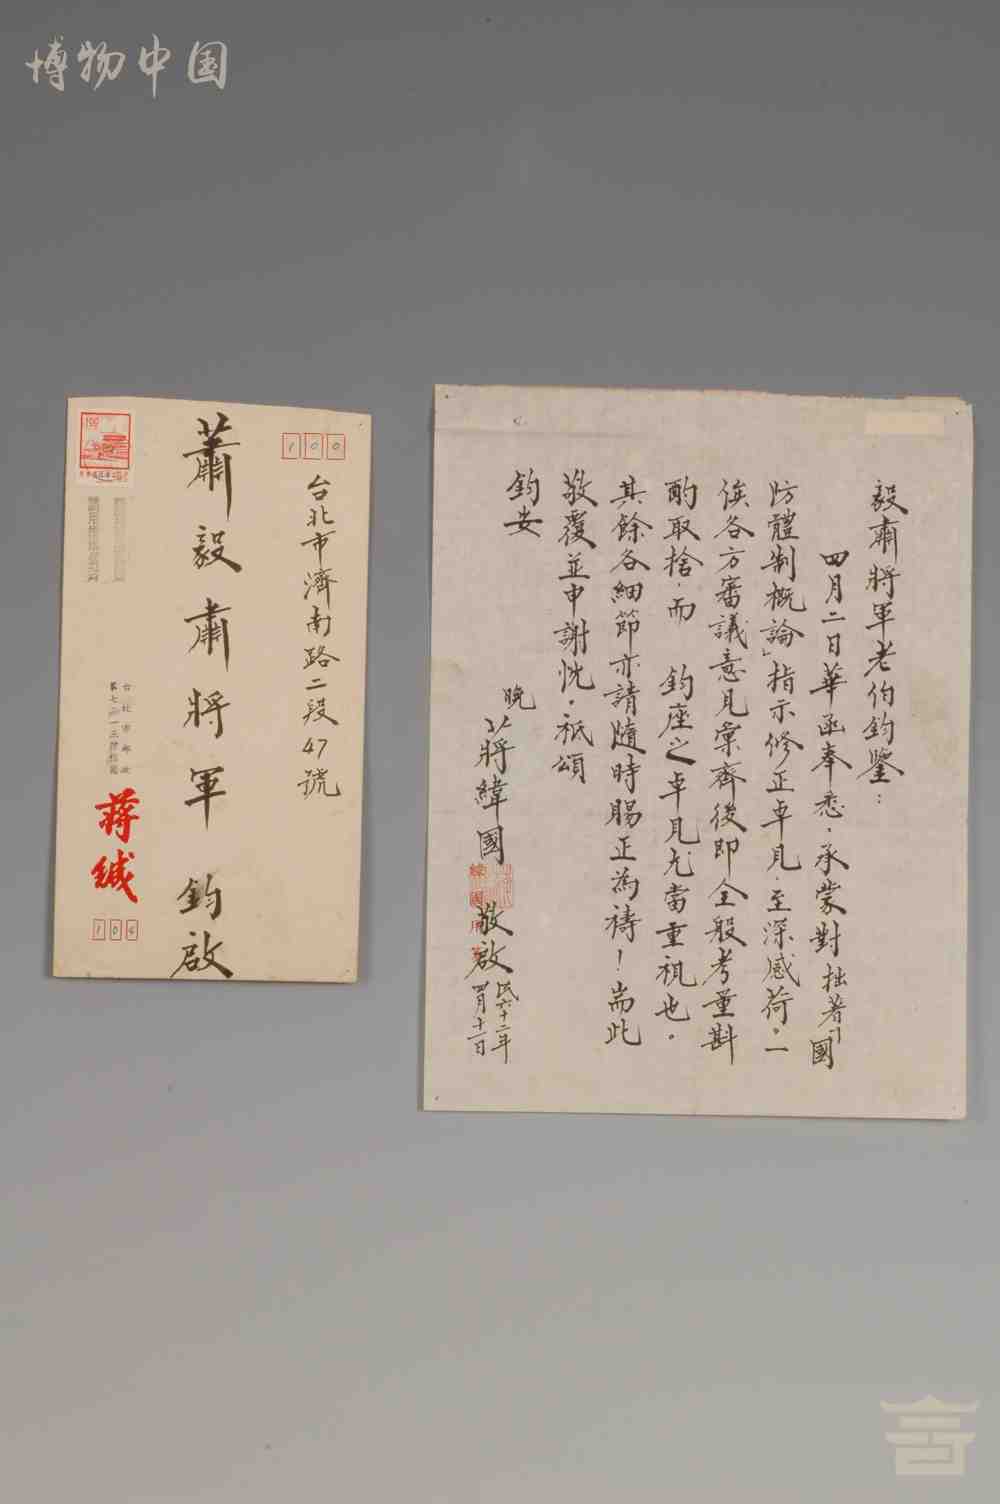 博物中国
100
台北市濟南路二段47號
蕭毅肅將軍鈞啟
蔣緘
104
毅肅將軍老伯鈞鑒：
四月二日華函奉悉，承蒙對拙著「國
防體制概論」指示修正卓見，至深感荷。一
俟各方審議意見彙齊後即全般考量斟
酌取捨，而 鈞座之卓見尤當重視也。
其餘各細節亦請隨時賜正為禱！耑此
敬覆並申謝忱。祇頌
鈞安
晚 蔣緯國 敬啟
民六十二年
四月十一日